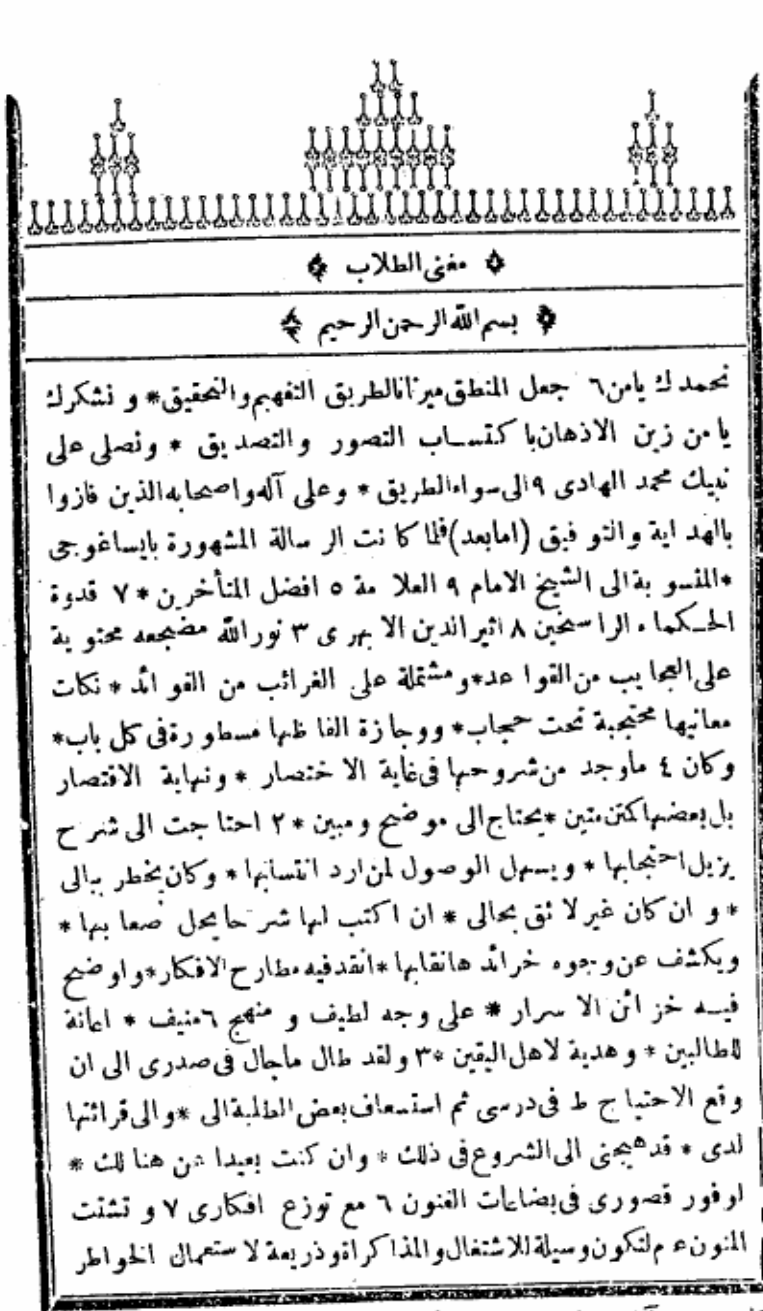 ﴿ مغنى الطلاب ﴾
﴿ بسم الله الرحمن الرحيم ﴾
نحمدك يامن ٦ جعل المنطق ميزانا لطريق التفهيم والتحقيق * و نشكرك
يا من زين الاذهان باكتساب التصور والتصديق * ونصلى على
نبيك محمد الهادى ٩ الى سواء الطريق * وعلى آله واصحابه الذين فازوا
بالهداية والتوفيق (امابعد) فلما كانت الرسالة المشهورة بايساغوجى
* المنسوبة الى الشيخ الامام ٩ العلامة ٥ افضل المتأخرين * ٧ قدوة
الحكماء الراسخين ٨ اثيرالدين الابهرى ٣ نورالله مضجعه محتوية
على العجايب من القواعد * ومشتملة على الغرائب من الفوائد * نكات
معانيها محتجبة تحت حجاب * ووجازة الفاظها مسطورة فى كل باب *
وكان ٤ ماوجد من شروحها فى غاية الاختصار * ونهاية الاقتصار
بل بعضها كمتن متين * يحتاج الى موضح ومبين * ٢ احتاجت الى شرح
يزيل احتجابها * ويسهل الوصول لمن ارد انتسابها * وكان يخطر ببالى
* و ان كان غير لائق بحالى * ان اكتب لها شرحا يحل صعابها *
ويكشف عن وجوه خرائدها نقابها * انقد فيه مطارح الافكار * واوضح
فيه خزائن الاسرار * على وجه لطيف و منهج ٦ منيف * اعانة
للطالبين * و هدية لاهل اليقين * ٣ ولقد طال ماجال فى صدرى الى ان
وقع الاحتياج ط فى درسى ثم استسعاف بعض الطلبة الى * والى قرائتها
لدى * قد هيجنى الى الشروع فى ذلك * وان كنت بعيدا عن هنالك *
لوفور قصورى فى بضاعات الفنون ٦ مع توزع افكارى ٧ و تشتت
المنون ء م لتكون وسيلة للاشتغال والمذاكراة وذريعة لاستعمال الخواطر